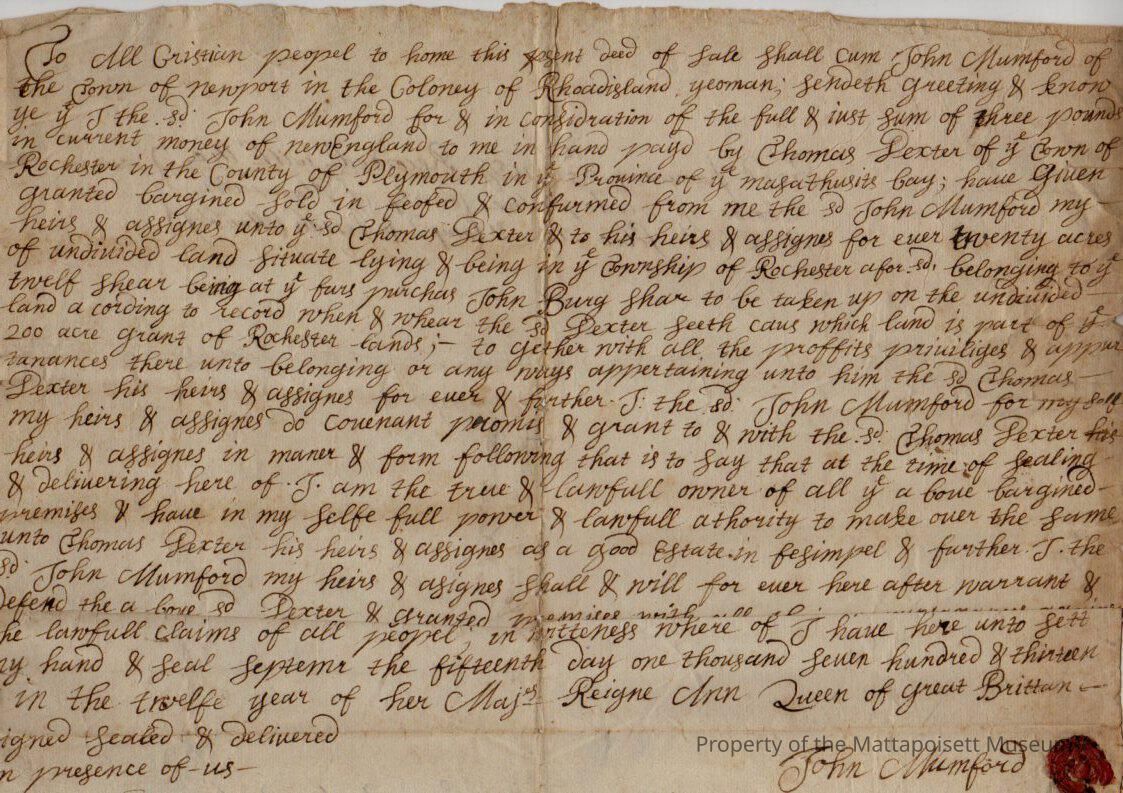 To All Cristian peopel to home this psent deed of sale shall cum John Mumford of
the Town of newport in the Coloney of Rhoadisland yeoman; sendeth Greeting & know
ye yt I the sd. John Mumford for & in considration of the full & iust sum of three pounds
in current money of newEngland to me in hand payd by Thomas Dexter of ye Town of
Rochester in the County of Plymouth in ye Province of ye masathusits bay; have Given
Granted bargined sold in feofed & confurmed from me the sd John Mumford my -
heirs & assignes unto ye sd Thomas Dexter & to his heirs & assignes for ever twenty acres
of undivided land situate lying & being in ye Township of Rochester afor sd. belonging to ye
twelf shear being at ye furs purchas John Burg shar to be taken up on the undivided -
land a cording to record when & whear the sd Dexter seeth caus which land is part of ye
200 acre grant of Rochester lands; - to gether with all the proffits priviliges & appur
tanances there unto belonging or any ways appertaining unto him the sd Thomas -
Dexter his heirs & assignes for ever & further I: the sd. John Mumford for my self
my heirs & assignes do covenant promis & grant to & with the sd. Thomas Dexter his
heirs & assignes in maner & form following that is to say that at the time of sealing
& delivering here of I. am the true & lawfull owner of all ye a bove bargined -
premises & have in my selfe full power & lawfull athority to make over the same
unto Thomas Dexter his heirs & assignes as a good Estate in fesimpel & further I. the
sd. John Mumford my heirs & asignes shall & will for ever here after warrant &
defend the a bove sd Dexter & granted premises with all
he lawfull claims of all peopel in witteness where of I have here unto sett
my hand & seal septemr the fifteenth day one thousand seven hundred & thirteen
in the twelfe year of her Majts Reigne Ann Queen of Great Brittan -
igned sealed & delivered
n presence of - us -
John Mumford
Property of the Mattapoisett Museum